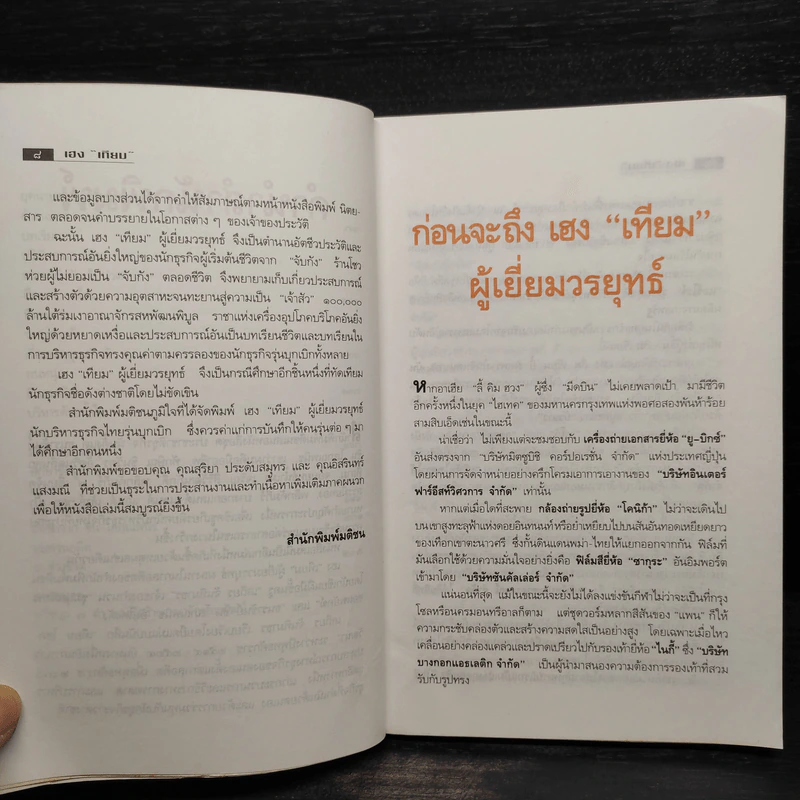 ๘ เฮง "เทียม"
และข้อมูลบางส่วนได้จากคำให้สัมภาษณ์ตามหน้าหนังสือพิมพ์ นิตย-
สาร ตลอดจนคำบรรยายในโอกาสต่าง ๆ ของเจ้าของประวัติ
ฉะนั้น เฮง "เทียม" ผู้เยี่ยมวรยุทธ์ จึงเป็นตำนานอัตชีวประวัติและ
ประสบการณ์อันยิ่งใหญ่ของนักธุรกิจผู้เริ่มต้นชีวิตจาก "จับกัง" ร้านโชว
ห่วยผู้ไม่ยอมเป็น "จับกัง" ตลอดชีวิต จึงพยายามเก็บเกี่ยวประสบการณ์
และสร้างตัวด้วยความอุตสาหะจนทะยานสู่ความเป็น "เจ้าสัว" ๑๐๐,๐๐๐
ล้านใต้ร่มเงาอาณาจักรสหพัฒนพิบูล ราชาแห่งเครื่องอุปโภคบริโภคอันยิ่ง
ใหญ่ด้วยหยาดเหงื่อและประสบการณ์อันเป็นบทเรียนชีวิตและบทเรียนใน
การบริหารธุรกิจทรงคุณค่าตามครรลองของนักธุรกิจรุ่นบุกเบิกทั้งหลาย
เฮง "เทียม" ผู้เยี่ยมวรยุทธ์ จึงเป็นกรณีศึกษาอีกชิ้นหนึ่งที่ทัดเทียม
นักธุรกิจชื่อดังต่างชาติโดยไม่ขัดเขิน
สำนักพิมพ์มติชนภูมิใจที่ได้จัดพิมพ์ เฮง "เทียม" ผู้เยี่ยมวรยุทธ์
นักบริหารธุรกิจไทยรุ่นบุกเบิก ซึ่งควรค่าแก่การบันทึกให้คนรุ่นต่อ ๆ มา
ได้ศึกษาอีกคนหนึ่ง
สำนักพิมพ์ขอขอบคุณ คุณสุริยา ประดับสมุทร และ คุณอิสรินทร์
แสงมณี ที่ช่วยเป็นธุระในการประสานงานและทำเนื้อหาเพิ่มเติมภาคผนวก
เพื่อให้หนังสือเล่มนี้สมบูรณ์ยิ่งขึ้น
สำนักพิมพ์มติชน
ก่อนจะถึง เฮง "เทียม"
ผู้เยี่ยมวรยุทธ์
หากอาเฮีย "ลี้ คิม ฮวง" ผู้ซึ่ง "มีดบิน" ไม่เคยพลาดเป้า มามีชีวิต
อีกครั้งหนึ่งในยุค "ไฮเทค" ของมหานครกรุงเทพแห่งพอศอสองพันห้าร้อย
สามสิบเอ็ดเช่นในขณะนี้
น่าเชื่อว่า ไม่เพียงแต่จะชมชอบกับ เครื่องถ่ายเอกสารยี่ห้อ "ยู-บิกซ์"
อันส่งตรงจาก "บริษัทมิตซูบิชิ คอร์ปอเรชัน จำกัด" แห่งประเทศญี่ปุ่น
โดยผ่านการจัดจำหน่ายอย่างครึกโครมเอาการเอางานของ "บริษัทอินเตอร์
ฟาร์อีสท์วิศวการ จำกัด" เท่านั้น
หากแต่เมื่อใดที่สะพาย กล้องถ่ายรูปยี่ห้อ "โคนิก้า" ไม่ว่าจะเดินไป
บนเขาสูงทะลุฟ้าแห่งดอยอินทนนท์หรือย่ำเหยียบไปบนสันอันทอดเหยียดยาว
ของเทือกเขาตะนาวศรี ซึ่งกั้นดินแดนพม่า-ไทยให้แยกออกจากกัน ฟิล์มที่
มันเลือกใช้ด้วยความมั่นใจอย่างยิ่งคือ ฟิล์มสียี่ห้อ "ซากุระ" อันอิมพอร์ต
เข้ามาโดย "บริษัทซันคัลเล่อร์ จำกัด"
แน่นอนที่สุด แม้ในขณะนี้จะยังไม่ได้ลงแข่งขันกีฬาไม่ว่าจะเป็นที่กรุง
โซลหรือนครมอนทรีอาลก็ตาม แต่ชุดวอร์มหลากสีสันของ "แพน" ก็ให้
ความกระชับคล่องตัวและสร้างความสดใสเป็นอย่างสูง โดยเฉพาะเมื่อไหว
เคลื่อนอย่างคล่องแคล่วและปราดเปรียวไปกับรองเท้ายี่ห้อ "ไนกี้" ซึ่ง "บริษัท
บางกอกแอธเลติก จำกัด" เป็นผู้นำมาสนองความต้องการรองเท้าที่สวม
รับกับรูปทรง